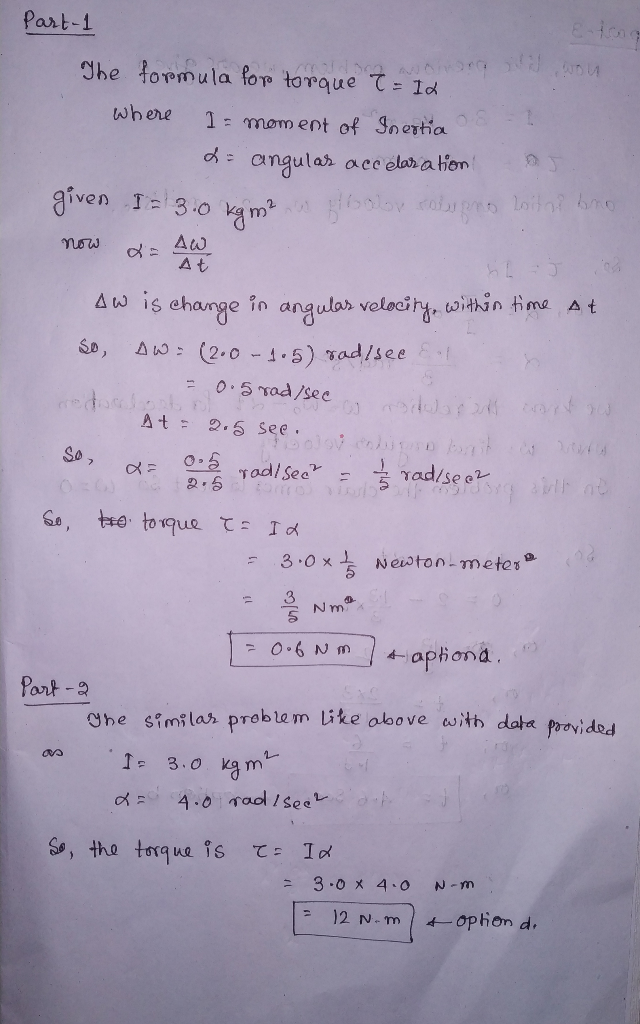 Part-1
The formula for torque τ = Iα
where I = moment of Inertia
α = angular accelaration
given I = 3.0 kgm²
now α = Δω/Δt
Δω is change in angular velocity, within time Δt
So, Δω = (2.0 - 1.5) rad/sec
= 0.5 rad/sec
Δt = 2.5 sec.
So, α = 0.5/2.5 rad/sec² = 1/5 rad/sec²
So, torque τ = Iα
= 3.0 × 1/5 Newton-meter
= 3/5 Nm
= 0.6 Nm ← optiona.
Part-2
The similar problem like above with data provided
as I = 3.0 kgm²
α = 4.0 rad/sec²
So, the torque is τ = Iα
= 3.0 × 4.0 N-m
= 12 N-m ← option d.